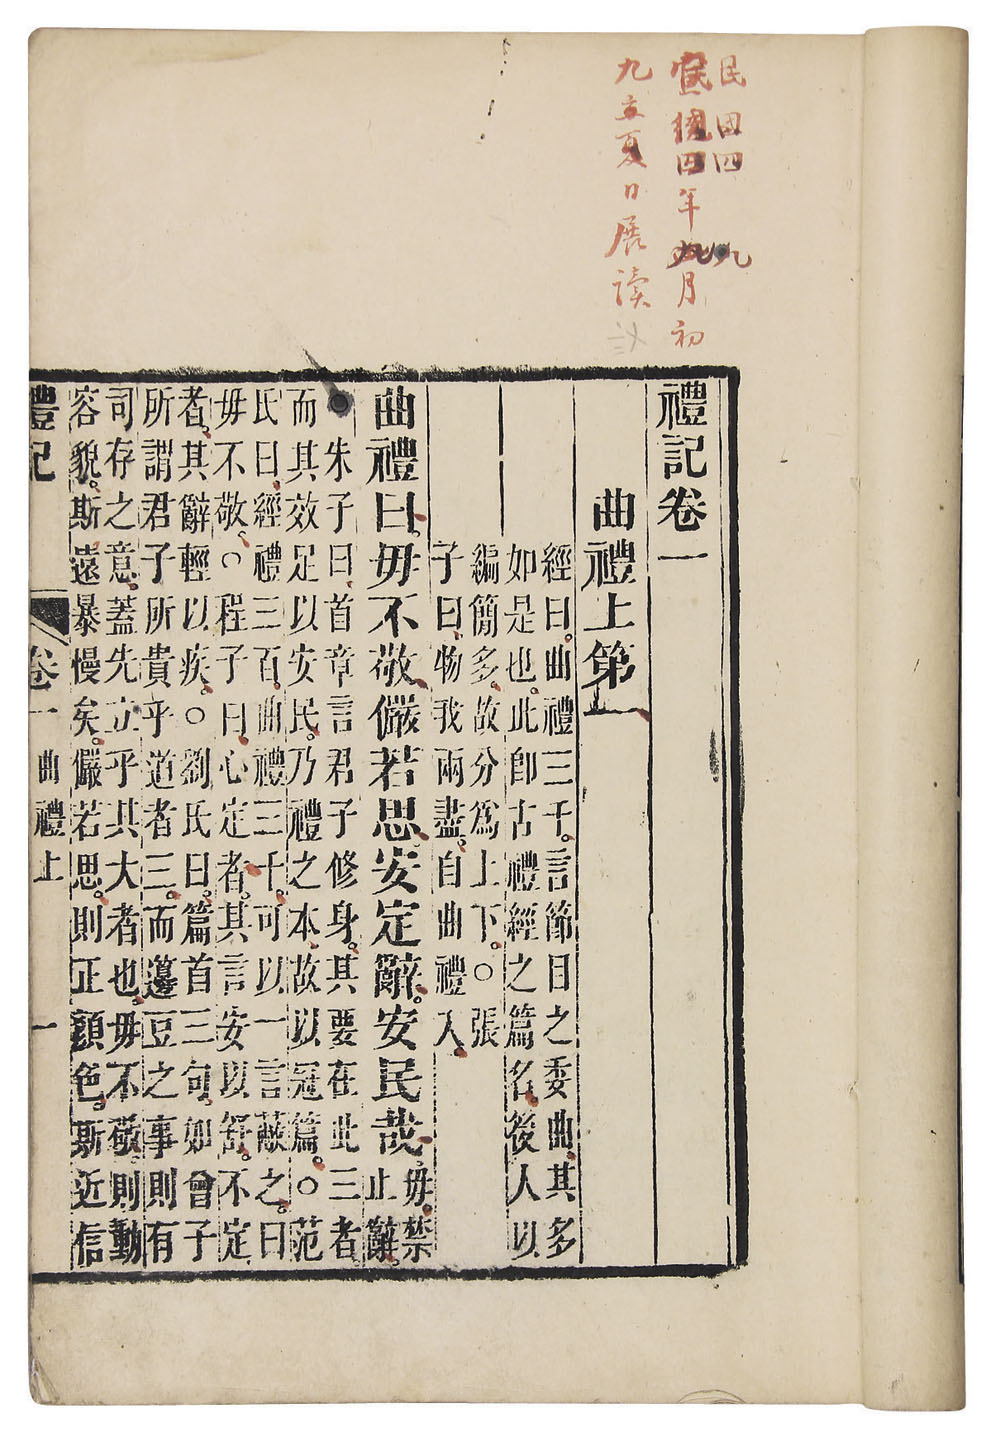 民国四 九
年 月初
九立夏日展读
禮記卷一
曲禮上第一
經曰。曲禮三千。言節目之委曲。其多
如是也。此卽古禮經之篇名。後人以
編簡多。故分爲上下。○張
子曰。物我兩盡。自曲禮入。
曲禮曰。毋不敬儼若思。安定辭。安民哉。毋。禁
止辭。
朱子曰。首章言君子修身。其要在此三者。
而其效足以安民。乃禮之本。故以冠篇。○范
氏曰。經禮三百。曲禮三千。可以一言蔽之。曰
毋不敬。○程子曰。心定者。其言安以舒。不定
者。其辭輕以疾。○劉氏曰。篇首三句。如曾子
所謂君子所貴乎道者三。而籩豆之事則有
司存之意。蓋先立乎其大者也。毋不敬。則動
容貌。斯遠暴慢矣。儼若思。則正顏色。斯近信
禮記 卷一 曲禮上 一